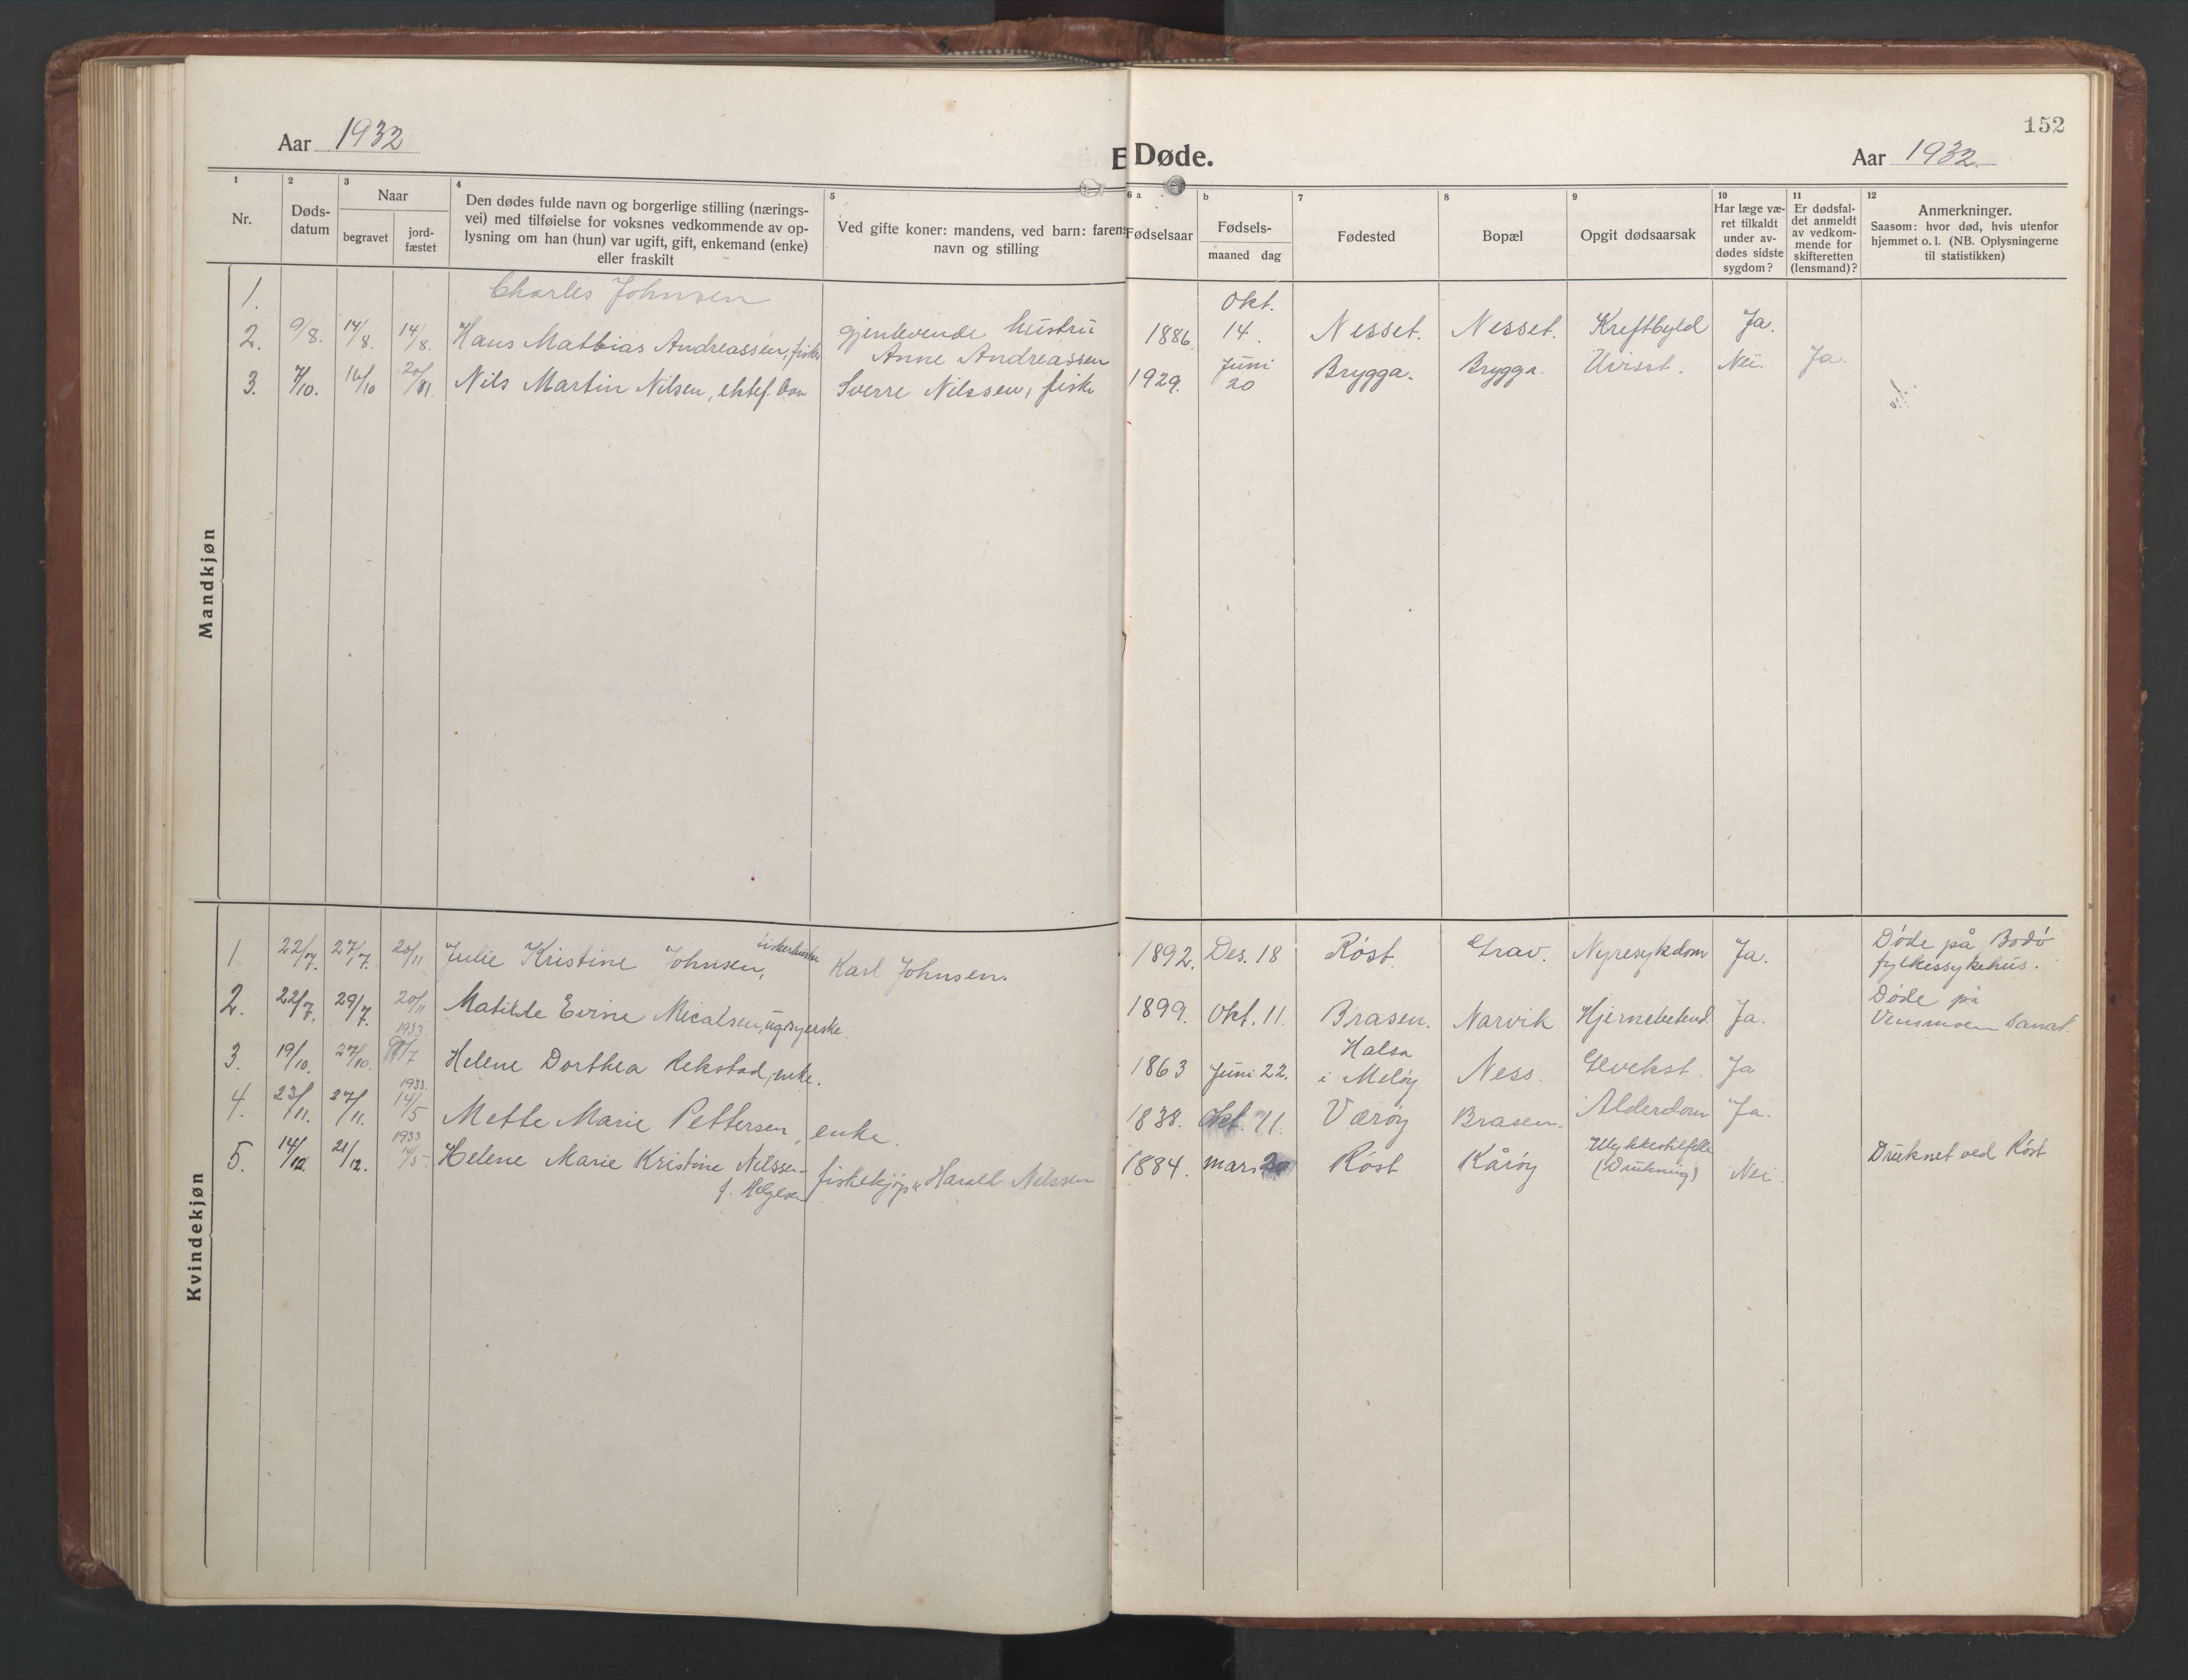 Aar 1932
Døde.
Aar 1932.
152
1
2
3
4
5
6 a
b
7
8
9
10
11
12
Nr.
Døds-
datum
Naar
begravet
jord-
fæstet
Den dødes fulde navn og borgerlige stilling (nærings-
vei) med tilføielse for voksnes vedkommende av op-
lysning om han (hun) var ugift, gift, enkemand (enke)
eller fraskilt
Ved gifte koner: mandens, ved barn: farens
navn og stilling
Fødselsaar
Fødsels-
maaned dag
Fødested
Bopæl
Opgit dødsaarsak
Har læge væ-
ret tilkaldt
under av-
dødes sidste
sygdom?
Er dødsfal-
det anmeldt
av vedkom-
mende for
skifteretten
(lensmand)?
Anmerkninger.
Saasom: hvor død, hvis utenfor
hjemmet o. l. (NB. Oplysningerne
til statistikken)
Mandkjøn
1. Charles Johnsen
2. 9/8. 14/8. 14/8. Hans Mathias Andreassen, fisker gjenlevende hustru Anne Andreassen 1886. Okt. 14. Nesset. Nesset. Kreftbyld Ja.
3. 7/10. 16/10 Nils Martin Nilsen, ektef. barn Sverre Nilssen, fisker 1929. Juni 20 Brygga. Brygga. Uvisst. Nei. Ja.
Kvindekjøn
1. 22/7. 27/7. 20/11 Julie Kristine Johnsen, Karl Johnsen. 1892. Des. 18 Røst Grav. Nyresykdom Ja. Døde på Bodø
fylkessykehus.
2. 22/7. 29/7. 20/11 Matilde Evine Micalsen, ug. syerske 1899. Okt. 11. Brasen. Narvik Hjernebetend. Ja. Døde på
Vensmoen Sanat.
3. 19/10. 27/10. 1933 Helene Dorthea Rekstad, enke. 1863 Juni 22. Halsa
i Meløy Ness. Ja
4. 23/11. 27/11. 1933 14/5 Mette Marie Pettersen, enke. 1838. Okt. 11. Værøy Brasen. Alderdom Ja.
5. 14/12. 21/12. 1933 14/5 Helene Marie Kristine Nilssen
f. Helgesen fiskekjøp. Harald Nilssen 1884. mars 20 Røst Kårøy Ulykkestilfelle
(Drukning) Nei. Druknet ved Røst